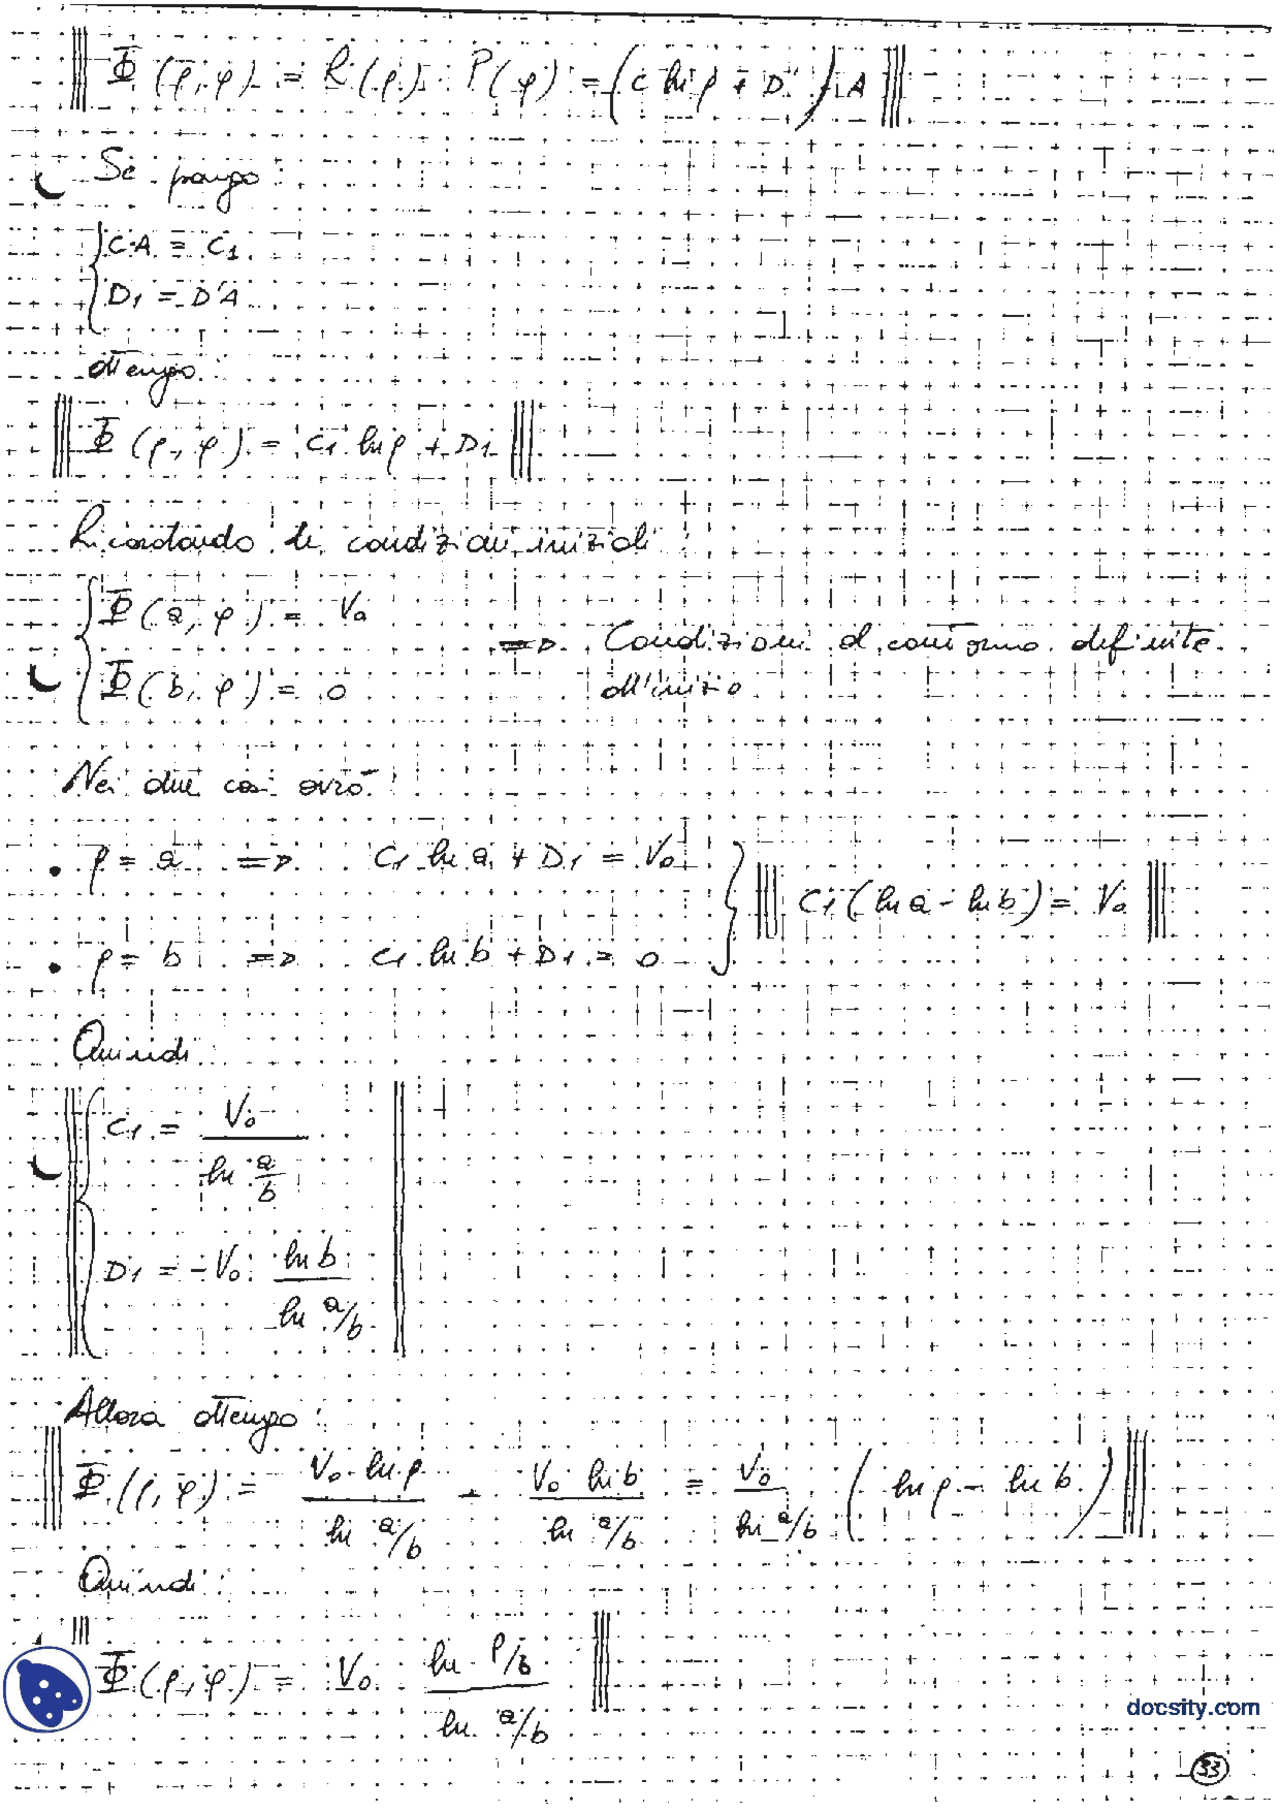 Φ(ρ,φ) = R(ρ) · P(φ) = (C ln ρ + D') · A
Se pongo
C·A = C1
D1 = D'A
ottengo:
Φ(ρ, φ) = C1 ln ρ + D1
Ricordando le condizioni iniziali
Φ(a, φ) = V0
Φ(b, φ) = 0
=> Condizioni al contorno definite
all'inizio
Nei due casi avrò:
• ρ = a => C1 ln a + D1 = V0
C1 (ln a - ln b) = V0
• ρ = b => C1 ln b + D1 = 0
Quindi
C1 = V0 / ln a/b
D1 = - V0 ln b / ln a/b
Allora ottengo:
Φ(ρ, φ) = V0 ln ρ / ln a/b - V0 ln b / ln a/b = V0 / ln a/b (ln ρ - ln b)
Quindi:
Φ(ρ, φ) = V0 ln ρ/b / ln a/b
docsity.com
33